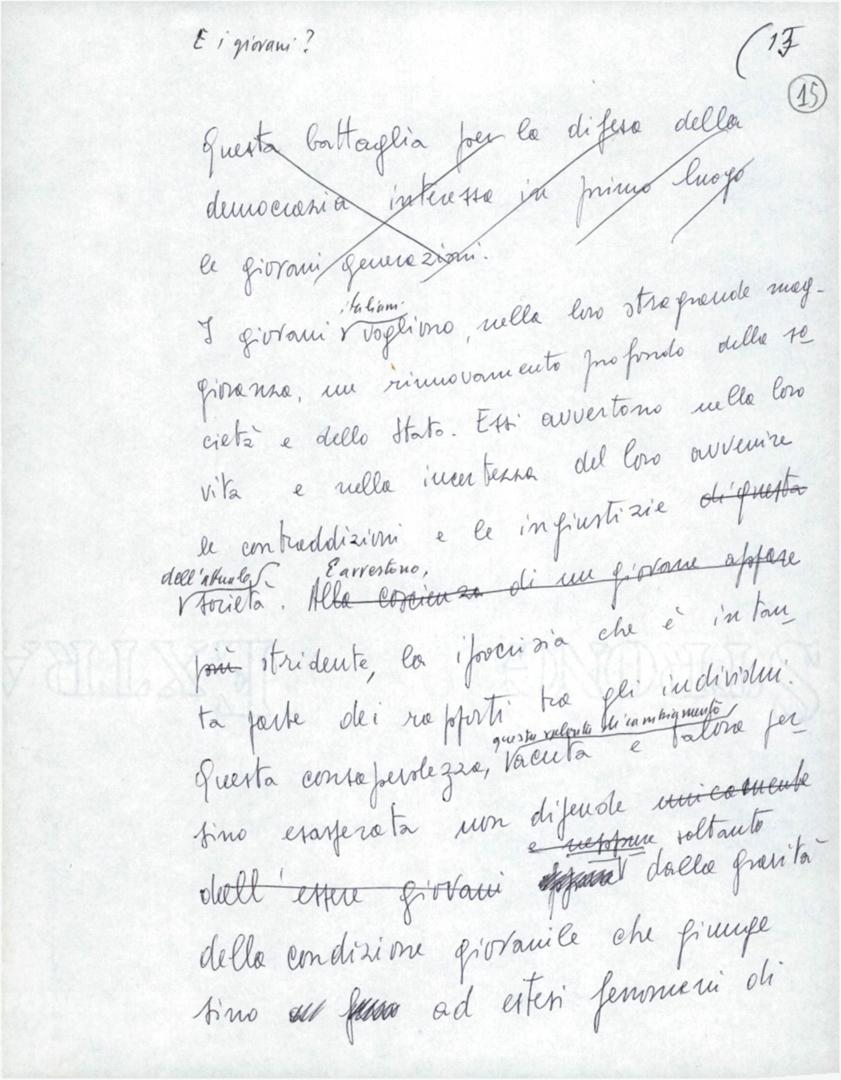 E i giovani?
(17
15
Questa battaglia per la difesa della
democrazia interessa in primo luogo
le giovani generazioni.
italiani
I giovani vogliono, nella loro stragrande mag-
gioranza, un rinnovamento profondo della so
cietà e dello Stato. Essi avvertono nella loro
vita e nella incertezza del loro avvenire
le contraddizioni e le ingiustizie di questa
dell'attuale E avvertono,
società. Alla coscienza di un giovane appare
più stridente, la ipocrisia che è in tan
ta parte dei rapporti tra gli individui.
questa volontà di cambiamento,
Questa consapevolezza, acuta e talora per
sino esasperata non dipende unicamente
e neppure soltanto
dall'essere giovani dalla gravità
della condizione giovanile che giunge
sino ad estesi fenomeni di